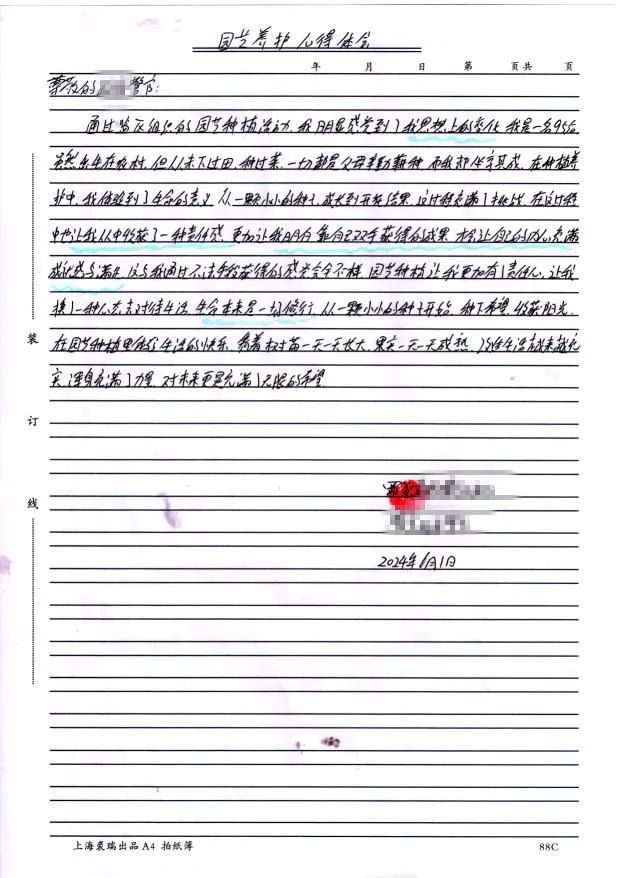 园艺养护心得体会
年 月 日 第 页共 页
尊敬的 警官:
通过监区组织的园艺种植活动,我明显感觉到了我思想上的变化,我是一名95后
虽然出生在农村,但从未下过田,种过菜,一切都是父母辛勤耕种,而我却坐享其成,在种植养
护中,我体验到了生命的意义,从一颗小小的种子,成长到开花结果,这过程充满了挑战,在这过程
中也让我从中收获了一种责任感,更加让我明白,靠自己双手获得的成果,才会让自己的内心充满
成就感与满足,这与我通过不法手段获得的感觉完全不様,园艺种植让我更加有责任心,让我
换了一种心态去对待生活,生命本来是一场修行,从一颗小小的种子开始,种下希望,收获阳光,
在园艺种植里体会生活的快乐,看着树苗一天一天长大,果实一天一天成熟,改造生活越来越充
实,浑身充满了力量,对未来更是充满了无限的希望
2024年6月1日
装
订
线
上海裘瑞出品A4 拍纸簿
88C